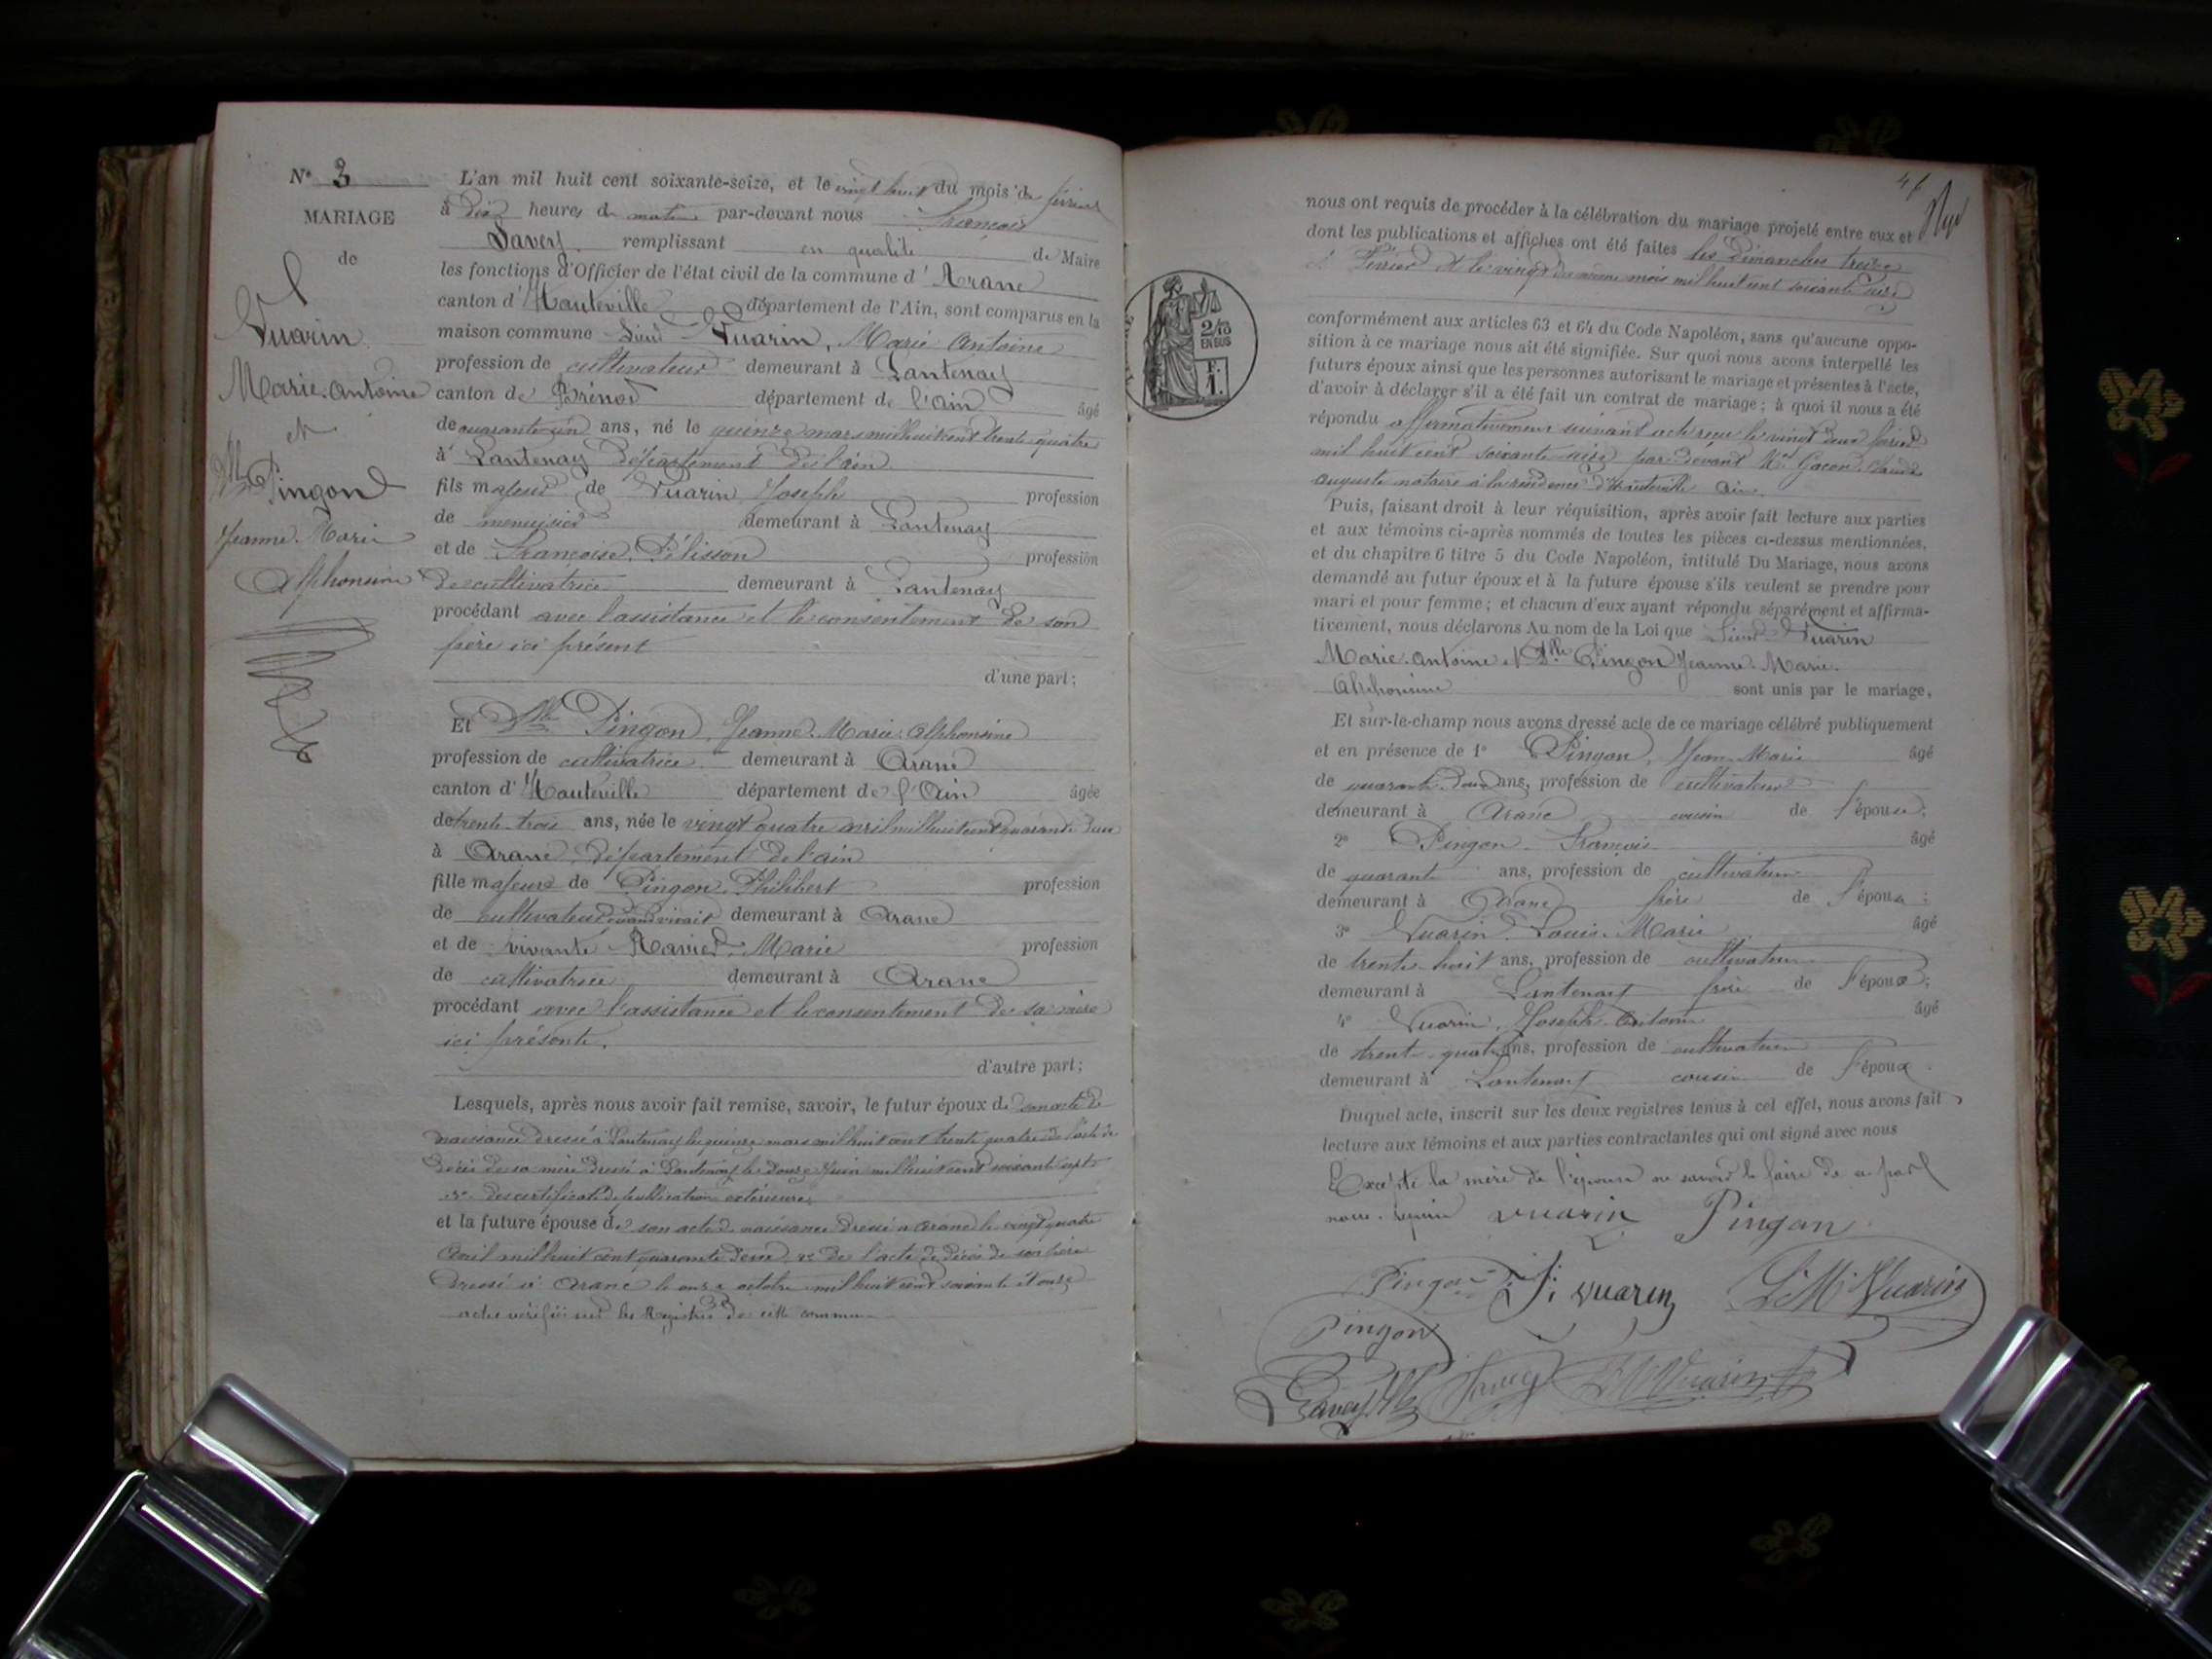 N° 3
MARIAGE
de
Vuarin
Marie-Antoine
et
Dlle Pingon
Jeanne-Marie
Alphonsine
L'an mil huit cent soixante-seize, et le vingt huit du mois de février
à dix heures du matin par-devant nous François
Savey remplissant en qualité de Maire
les fonctions d'Officier de l'état civil de la commune d'Arane
canton d'Hauteville département de l'Ain, sont comparus en la
maison commune Sieur Vuarin, Marie Antoine
profession de cultivateur demeurant à Lantenay
canton de Brénod département de l'ain âgé
de quarante-un ans, né le quinze mars mil huit cent trente quatre
à Lantenay département de l'ain
fils majeur de Vuarin Joseph profession
de menuisier demeurant à Lantenay
et de Françoise Pélisson profession
de cultivatrice demeurant à Lantenay
procédant avec l'assistance et le consentement de son
père ici présent
d'une part;
Et Dlle Pingon, Jeanne-Marie-Alphonsine
profession de cultivatrice demeurant à Arane
canton d'Hauteville département de l'Ain âgée
de trente-trois ans, née le vingt quatre avril mil huit cent quarante deux
à Arane, département de l'ain
fille majeure de Pingon, Philibert profession
de cultivateur quand vivait demeurant à Arane
et de vivante Ravier, Marie profession
de cultivatrice demeurant à Arane
procédant avec l'assistance et le consentement de sa mère
ici présente.
d'autre part;
Lesquels, après nous avoir fait remise, savoir, le futur époux de son acte de
naissance dressé à Lantenay le quinze mars mil huit cent trente quatre de l'acte de
décès de sa mère dressé à Lantenay le douze Juin mil huit cent soixante sept
du certificat de publication extérieures
et la future épouse de son acte de naissance dressé à Arane le vingt quatre
Avril mil huit cent quarante deux, de l'acte de décès de son père
dressé à Arane le onze octobre mil huit cent soixante et onze
actes vérifiés sur les Registres de cette commune
nous ont requis de procéder à la célébration du mariage projeté entre eux et
dont les publications et affiches ont été faites les dimanches treize
Février et le vingt du même mois mil huit cent soixante seize
conformément aux articles 63 et 64 du Code Napoléon, sans qu'aucune oppo-
sition à ce mariage nous ait été signifiée. Sur quoi nous avons interpellé les
futurs époux ainsi que les personnes autorisant le mariage et présentes à l'acte,
d'avoir à déclarer s'il a été fait un contrat de mariage; à quoi il nous a été
répondu affirmativement suivant acte reçu le vingt deux février
mil huit cent soixante seize par-devant Me Gacon Claude
Auguste notaire à la résidence d'Hauteville Ain.
Puis, faisant droit à leur réquisition, après avoir fait lecture aux parties
et aux témoins ci-après nommés de toutes les pièces ci-dessus mentionnées,
et du chapitre 6 titre 5 du Code Napoléon, intitulé Du Mariage, nous avons
demandé au futur époux et à la future épouse s'ils veulent se prendre pour
mari et pour femme; et chacun d'eux ayant répondu séparément et affirma-
tivement, nous déclarons Au nom de la Loi que Sieur Vuarin
Marie-Antoine et Dlle Pingon Jeanne-Marie-
Alphonsine sont unis par le mariage,
Et sur-le-champ nous avons dressé acte de ce mariage célébré publiquement
et en présence de 1° Pingon, Jean-Marie âgé
de quarante-deux ans, profession de cultivateur
demeurant à Arane cousin de l'épouse;
2° Pingon François âgé
de quarante ans, profession de cultivateur
demeurant à Arane frère de l'épouse;
3° Vuarin Louis-Marie âgé
de trente-huit ans, profession de cultivateur
demeurant à Lantenay frère de l'époux;
4° Vuarin, Joseph-Antoine âgé
de trente-quatre ans, profession de cultivateur
demeurant à Lantenay cousin de l'époux.
Duquel acte, inscrit sur les deux registres tenus à cet effet, nous avons fait
lecture aux témoins et aux parties contractantes qui ont signé avec nous
Excepté la mère de l'épouse ne savoir le faire de ce par
nous requise vuarin Pingon
Pingon J. vuarin L M Vuarin
Pingon
Savey
2/10
EN SUS
F.
1.